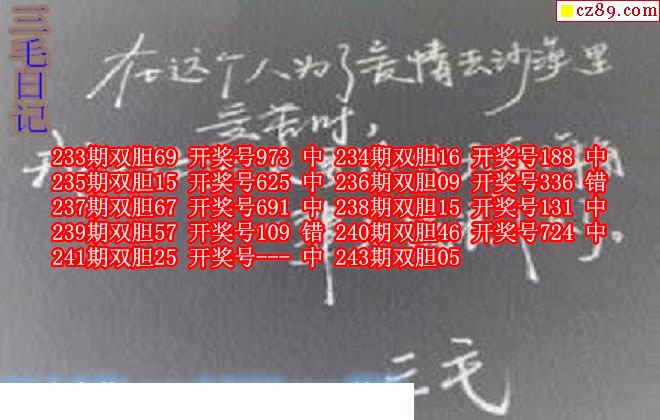 cz89.com
三毛日记
在这个人为了爱情去沙漠里
受苦时，
233期双胆69 开奖号973 中 234期双胆16 开奖号188 中
235期双胆15 开奖号625 中 236期双胆09 开奖号336 错
237期双胆67 开奖号691 中 238期双胆15 开奖号131 中
239期双胆57 开奖号109 错 240期双胆46 开奖号724 中
241期双胆25 开奖号--- 中 243期双胆05
三毛